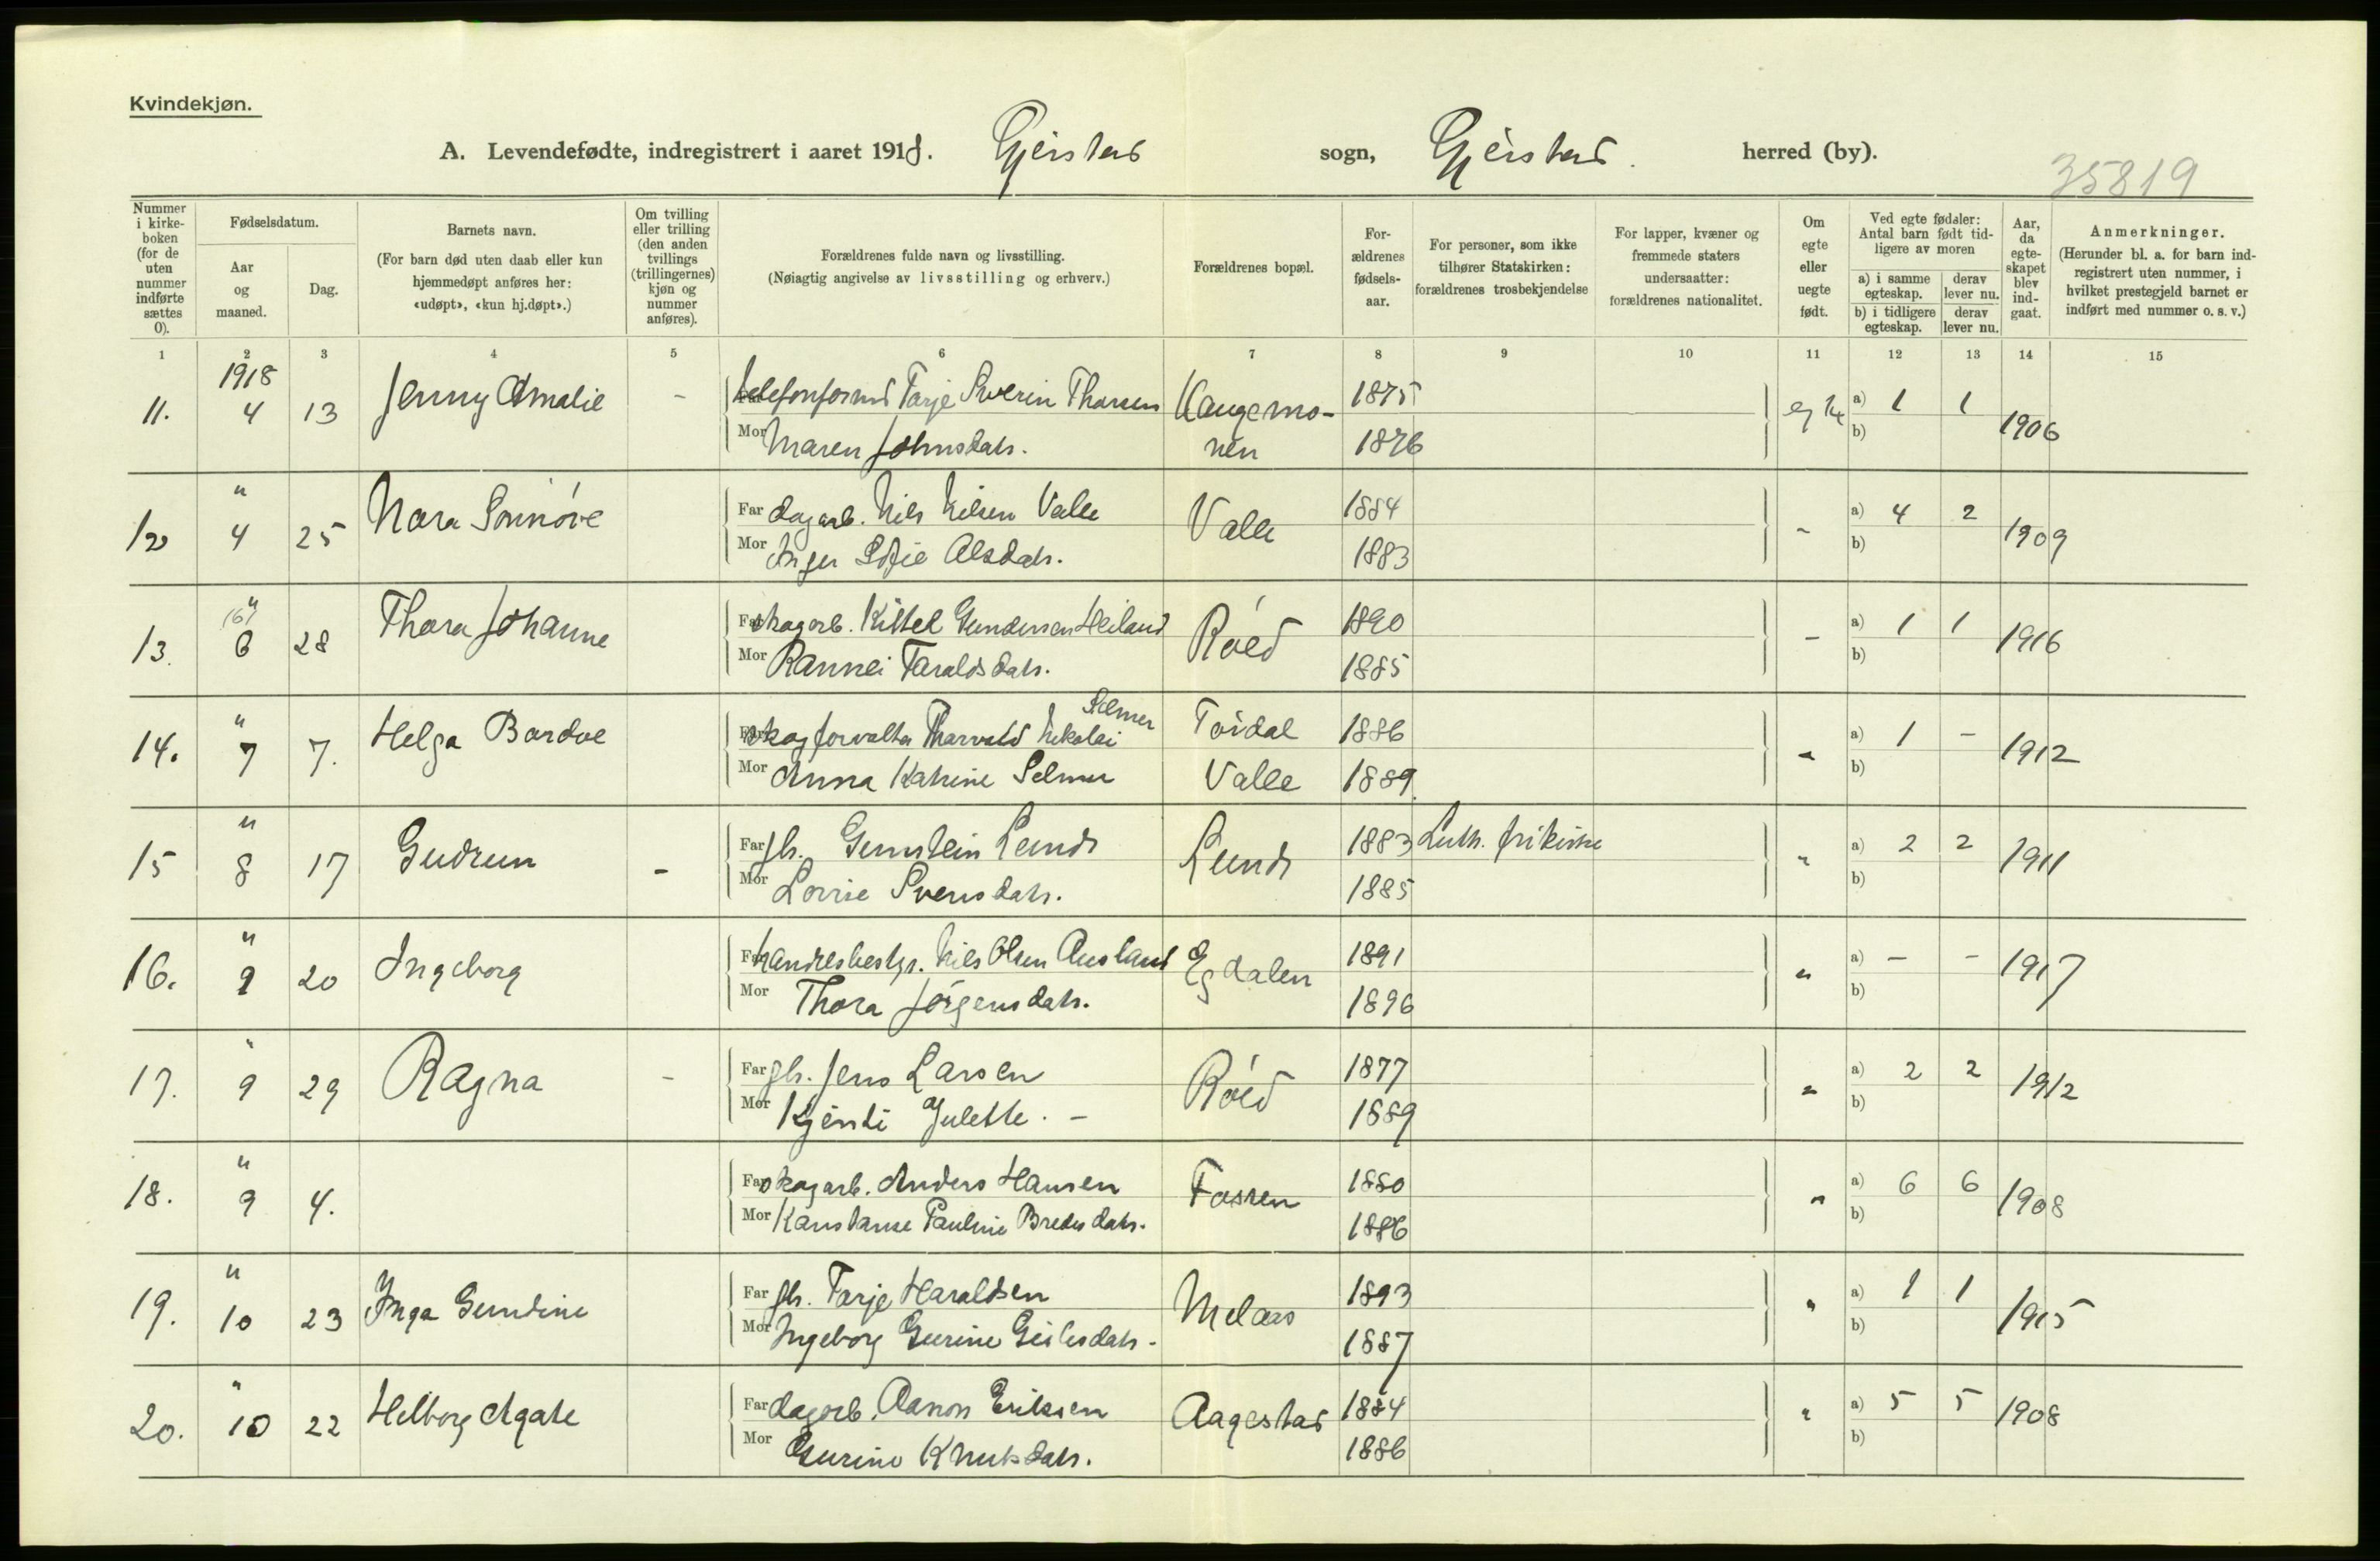 Kvindekjøn.
A. Levendefødte, indregistrert i aaret 1918. Gjerstad sogn, Gjerstad. herred (by).
35819
Nummer i kirkeboken (for de uten nummer indførte sættes 0).
Fødselsdatum.
Aar og maaned.
Dag.
Barnets navn.
(For barn død uten daab eller kun hjemmedøpt anføres her: «udøpt», «kun hj.døpt».)
Om tvilling eller trilling (den anden tvillings (trillingernes) kjøn og nummer anføres).
Forældrenes fulde navn og livsstilling.
(Nøiagtig angivelse av livsstilling og erhverv.)
Forældrenes bopæl.
Forældrenes fødselsaar.
For personer, som ikke tilhører Statskirken: forældrenes trosbekjendelse
For lapper, kvæner og fremmede staters undersaatter: forældrenes nationalitet.
Om egte eller uegte født.
Ved egte fødsler: Antal barn født tidligere av moren
a) i samme egteskap.
derav lever nu.
b) i tidligere egteskap.
derav lever nu.
Aar, da egteskapet blev indgaat.
Anmerkninger.
(Herunder bl. a. for barn indregistrert uten nummer, i hvilket prestegjeld barnet er indført med nummer o. s. v.)
1 2 3 4 5 6 7 8 9 10 11 12 13 14 15
1918
11. 4 13 Jenny Amalie - telefonformd Tarje Severin Thorsen 1875 egte a) 1 1 1906
Mor Maren Johnsdatr. 1876 b)
" 12 4 25 Nora Sønnøve Far dagarb. Nils Nilsen Valle Valle 1884 - a) 4 2 1909
Mor Inger Sofie Alsdatr. 1883 b)
" (6)
13. 6 28 Thora Johanne Far skogarb. Kittel Gundersen Heiland Røed 1890 - a) 1 1 1916
Mor Rannei Taraldsdatr. 1885 b)
" 14. 7 7. Helga Bordve Far skogforvalter Tharvald Nikolai Selmer Tovdal 1886 " a) 1 - 1912
Mor Anna Katrine Selmer Valle 1889. b)
" 15 8 17 Gudrun - Far gb. Gunstein Lunde Lunde 1883 Luth. frikirke " a) 2 2 1911
Mor Lovise Svensdatr. 1885 b)
" 16. 9 20 Ingeborg Far handelsbestyr. Nils Olsen Ausland Egdalen 1891 " a) - - 1917
Mor Thora Jørgensdatr. 1896 b)
" 17. 9 29 Ragna - Far gb. Jens Larsen Røed 1877 " a) 2 2 1912
Mor Kjersti Julette. - 1889 b)
" 18. 9 4. Far skogarb. Anders Hansen Fossen 1880 " a) 6 6 1908
Mor Konstanse Pauline Bredesdatr. 1886 b)
" 19. 10 23 Inga Gundine Far gb. Tarje Haraldsen Melaas 1893 " a) 1 1 1915
Mor Ingeborg Gurine 1887 b)
" 20. 10 22 Helborg Agate Far dagarb. Aanon Eriksen Aagestad 1884 " a) 5 5 1908
Mor Gurine Knutsdatr. 1886 b)